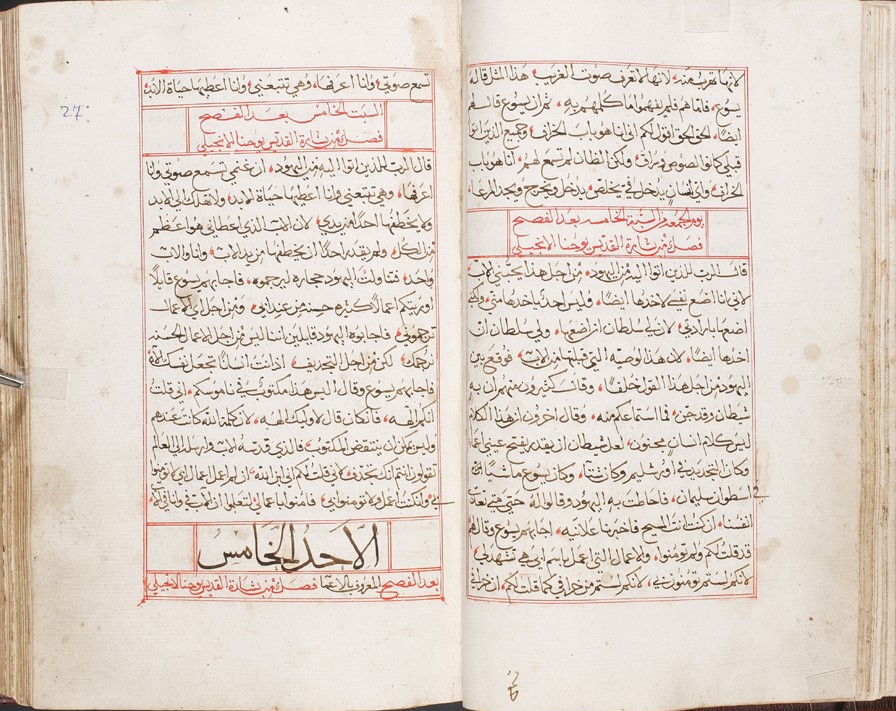 لانها تهرب منه، لانها لا تعرف صوت الغريب هذا المثل قاله
يسوع، فاما هم فلم يفهموا ما كلمهم به، ثم ان يسوع قال لهم
ايضًا، الحق الحق اقول لكم اني انا هو باب الخراف، وجميع الذين اتوا
قبلي كانوا لصوص وسراق، ولكن الظان لم تسمع لهم، انا هو باب
الخراف، واي انسان يدخل في يخلص، يدخل ويخرج ويجد المرعا،
يوم الجمعه من السبة الخامسه بعد الفصح
فصل من بشارة القديس يوحنا الانجيلي
قال الرب للذين اتوا اليه من اليهود، من اجل هذا يحبني الاب
لاني انا اضع نفسي لاخدها ايضًا، وليس احد ياخدها مني، ولكني
اضعها بارادتي، لان لي سلطان ان اضعها، ولي سلطان ان
اخدها ايضًا، لان هذا الوصيه التي قبلتها من الاب، فوقع بين
اليهود من اجل هذا القول خلف، وقال كثيرون منهم ان به
شيطان وقد جن، فما استماعكم منه، وقال اخرون ان هذا الكلام
ليس كلام انسان مجنون، لعل شيطان ان يقدر يفتح عيني اعما
وكان التجديد في اورشليم وكان شتا، وكان يسوع ماشيًا في
اسطوان سليمان، فاحاطت به اليهود وقالوا له حتى متى تعذب
انفسنا، ان كنت انت المسيح فاخبرنا علانيه، اجابهم يسوع وقال لهم
قد قلت لكم ولم تومنوا، والاعمال التي اعمل باسم ابي هي تشهد لي،
لانكم لستم تومنون بي، لانكم لستم من خرافي كما قلت لكم، ان خرافي
27
تسمع صوتي، وانا اعرفها، وهي تتبعني، وانا اعطيها حياة الابد،
السبت الخامس بعد الفصح
فصل من بشارة القديس يوحنا الانجيلي
قال الرب للذين اتوا اليه من اليهود، ان غنمي تسمع صوتي وانا
اعرفها، وهي تتبعني وانا اعطيها حياة الابد، ولا تهلك الى الابد
ولا يخطفها احدًا من يدي، لان الاب الذي اعطاني هو اعظم
من الكل، ولم يقدر احدًا ان يخطفها من يد الاب، وانا والاب
واحد، فتناولت اليهود حجاره ليرجموه، فاجابهم يسوع قايلًا
اوريتكم اعمالًا كثيره حسنه من عند ابي، فمن اجل اي الاعمال
ترجموني، فاجابوه اليهود قايلين اننا ليس من اجل الاعمال الحسنه
نرجمك، لكن من اجل التجديف، اذ انت انسانًا تجعل نفسك الاه
فاجابهم يسوع وقال، اليس هذا مكتوب في ناموسكم، اني قلت
انكم الهه، فان كان قال لاوليك الهه، لان كلمة الله كانت عندهم
وليس يمكن ان ينتقض المكتوب، فالذي قدسه الاب وارسله الى العالم
تقولوا انتم انك تجدف، لاني قلت لكم اني ابن الله، ان لم اعمل اعمال ابي لا تومنوا
بي، وان كنت اعمل ولا تومنوا بي، فامنوا باعمالي، لتعلموا ان الاب في وانا في الاب
الاحد الخامس
بعد الفصح المعروف بالاعما فصل من بشارة القديس يوحنا الانجيلي